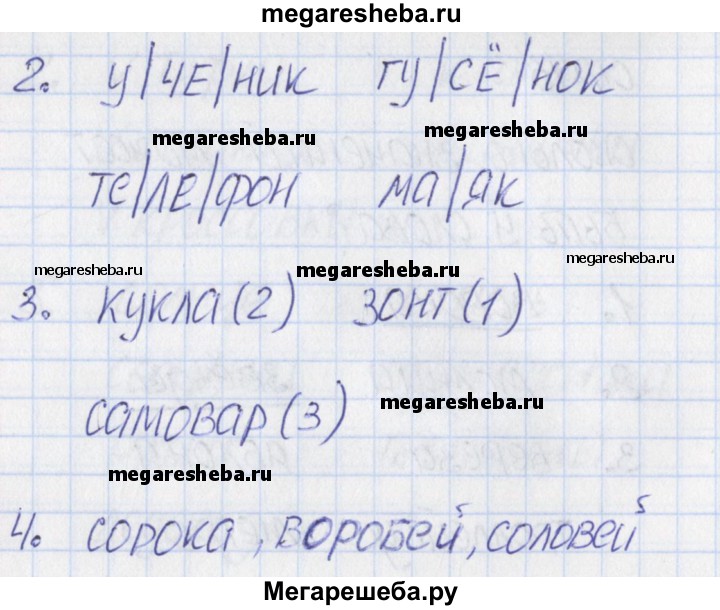 megaresheba.ru
2. У|ЧЕ|НИК ГУ|СЁ|НОК
megaresheba.ru megaresheba.ru
ТЕ|ЛЕ|ФОН МА|ЯК
megaresheba.ru megaresheba.ru megaresheba.ru
3. КУКЛА (2) ЗОНТ (1)
САМОВАР (3) megaresheba.ru
megaresheba.ru
4. СОРОКА, ВОРОБЕЙ, СОЛОВЕЙ
Мегарешеба.ру